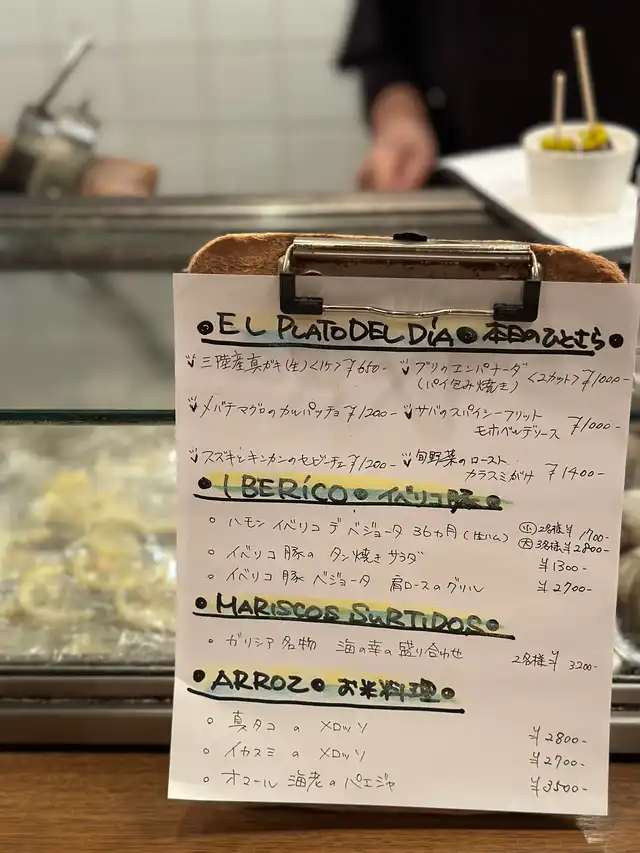 • EL PLATO DEL DíA • 本日のひとさら •
三陸産真ガキ(生)<1ケ>¥650-
ブリのエンパナーダ
(パイ包み焼き) <2カット> ¥1000-
メバチマグロのカルパッチョ ¥1200-
サバのスパイシーフリット
モホベルデソース ¥1000-
スズキとキンカンのセビーチェ ¥1200-
旬野菜のロースト
カラスミがけ ¥1400-
• IBERíCO • イベリコ豚 •
○ ハモン イベリコ デ ベジョータ 36ヵ月 (生ハム) ㊛2名様¥1700-
大 3名様¥2800-
○ イベリコ豚の タン焼きサラダ ¥1300-
○ イベリコ豚 ベジョータ 肩ロースのグリル ¥2700-
• MARISCOS SURTIDOS •
○ ガリシア名物 海の幸の盛り合わせ 2名様¥3200-
• ARROZ • お米料理 •
○ 真タコ の メロッソ ¥2800-
○ イカスミ の メロッソ ¥2700-
○ オマール 海老のパエジャ ¥3500-